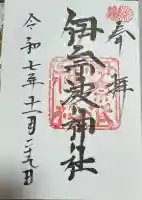 奉拝
伊奈波神社
令和七年十一月二十九日